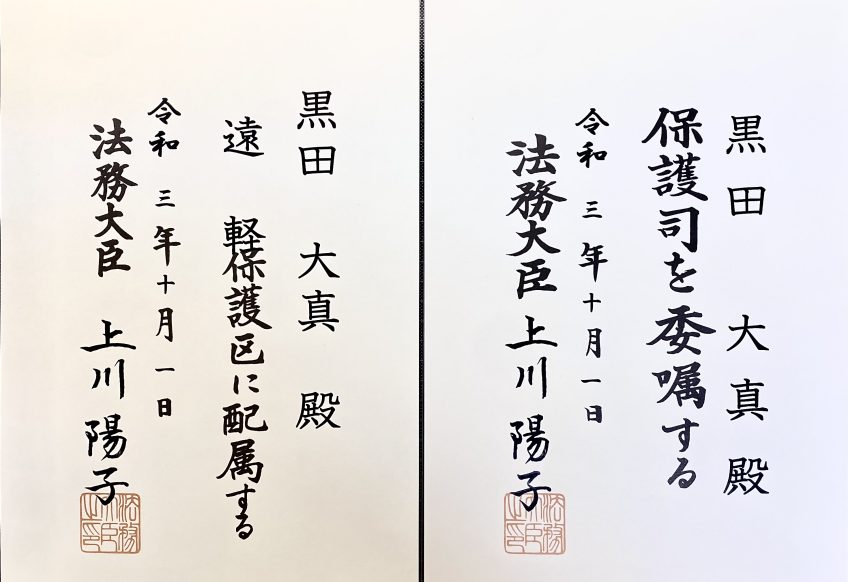 黒田 大真 殿
保護司を委嘱する
令和 三 年十月一日
法務大臣 上川 陽子
法務大臣之印
黒田 大真 殿
遠 軽保護区に配属する
令和 三 年十月一日
法務大臣 上川 陽子
法務大臣之印